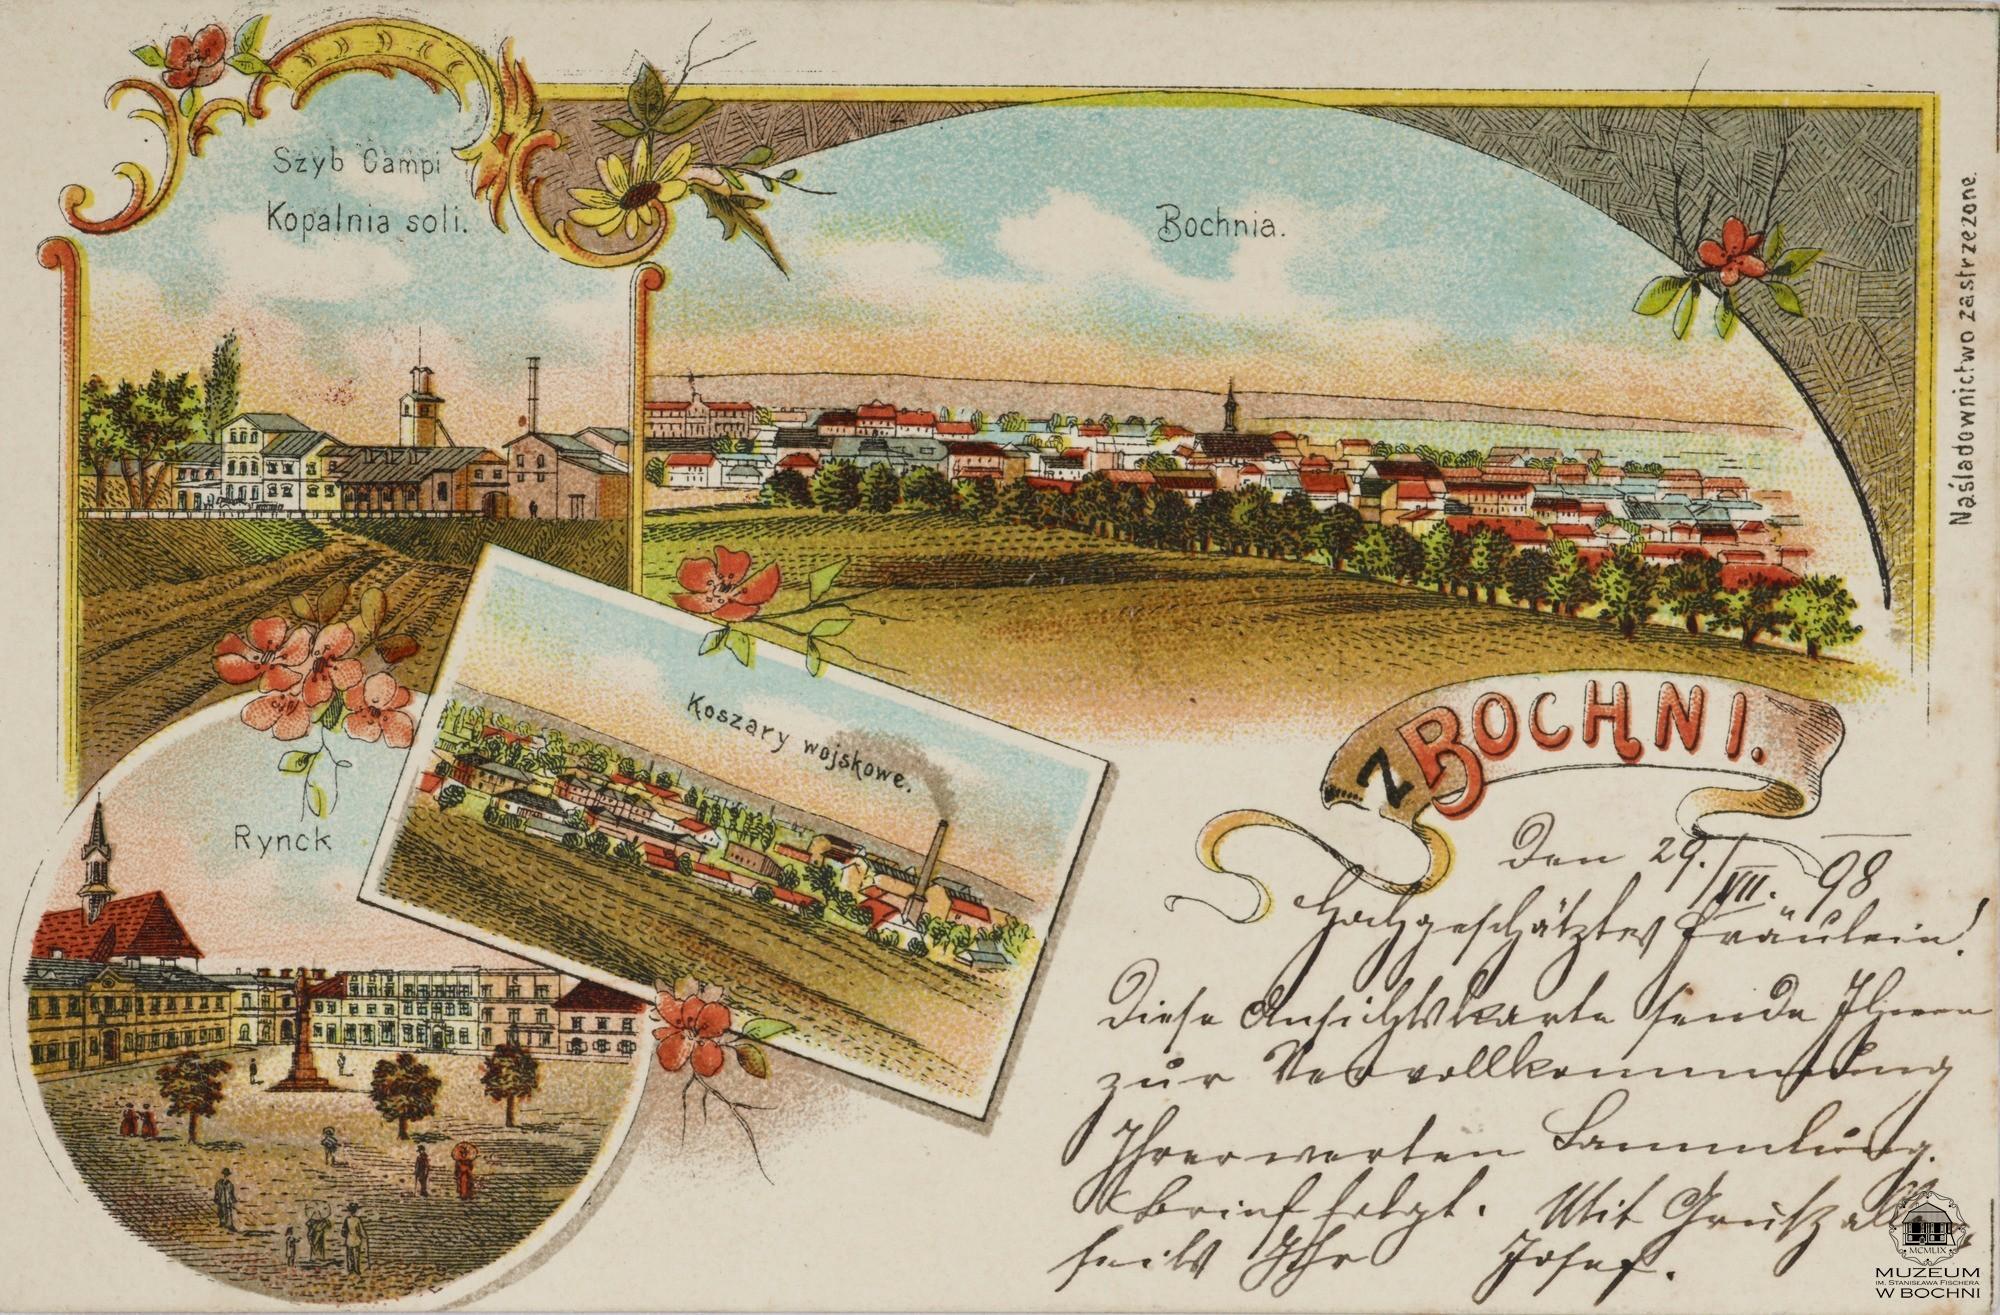 Szyb Campi
Kopalnia soli.
Bochnia.
Naśladownictwo zastrzeżone.
Koszary wojskowe.
Rynek
Z BOCHNI.
Den 29./VII. 98
Hochgeschätztes Fräulein!
Diese Ansichtskarte sende Ihnen
zur Vervollkommnung
Ihrer werten Sammlung.
Brief folgt. Mit Gruß aller-
seits Ihr Josef.
MCMLIX
MUZEUM
IM. STANISŁAWA FISCHERA
W BOCHNI